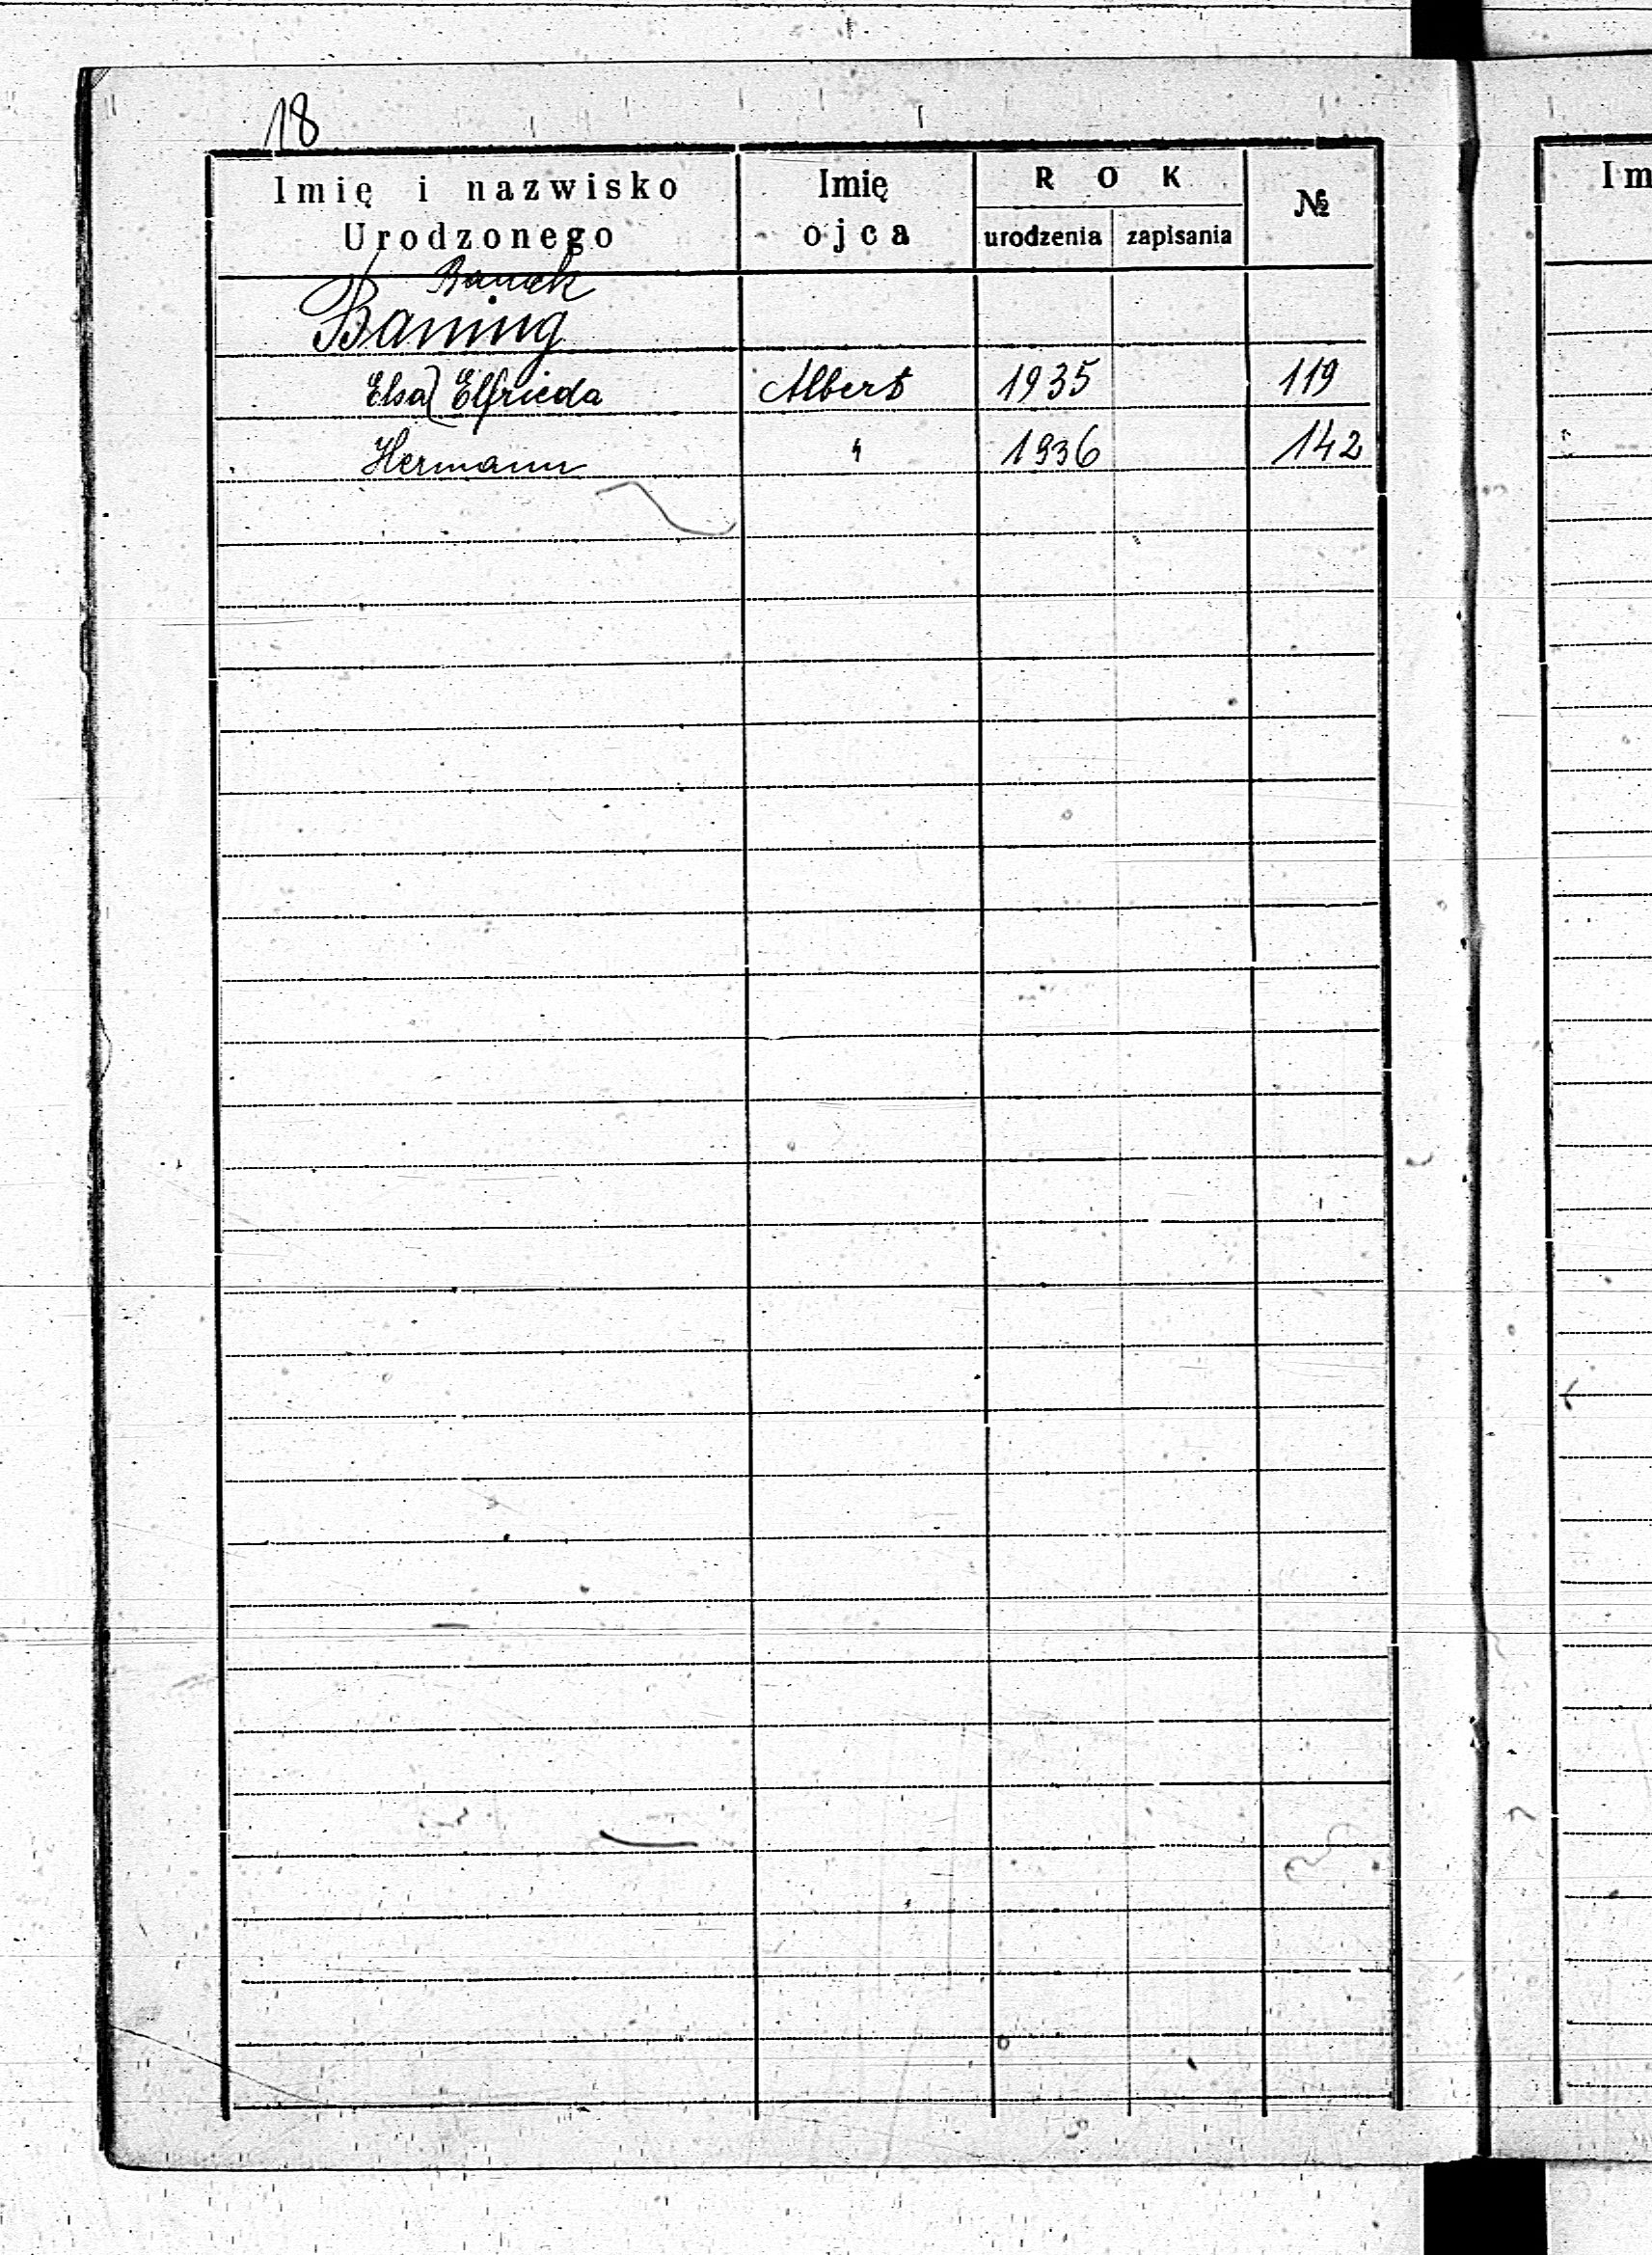 18
Imię i nazwisko Urodzonego
Imię ojca
ROK
urodzenia
zapisania
№
Baning
Elsa Elfrieda Albert 1935 119
Hermann " 1936 142
Im